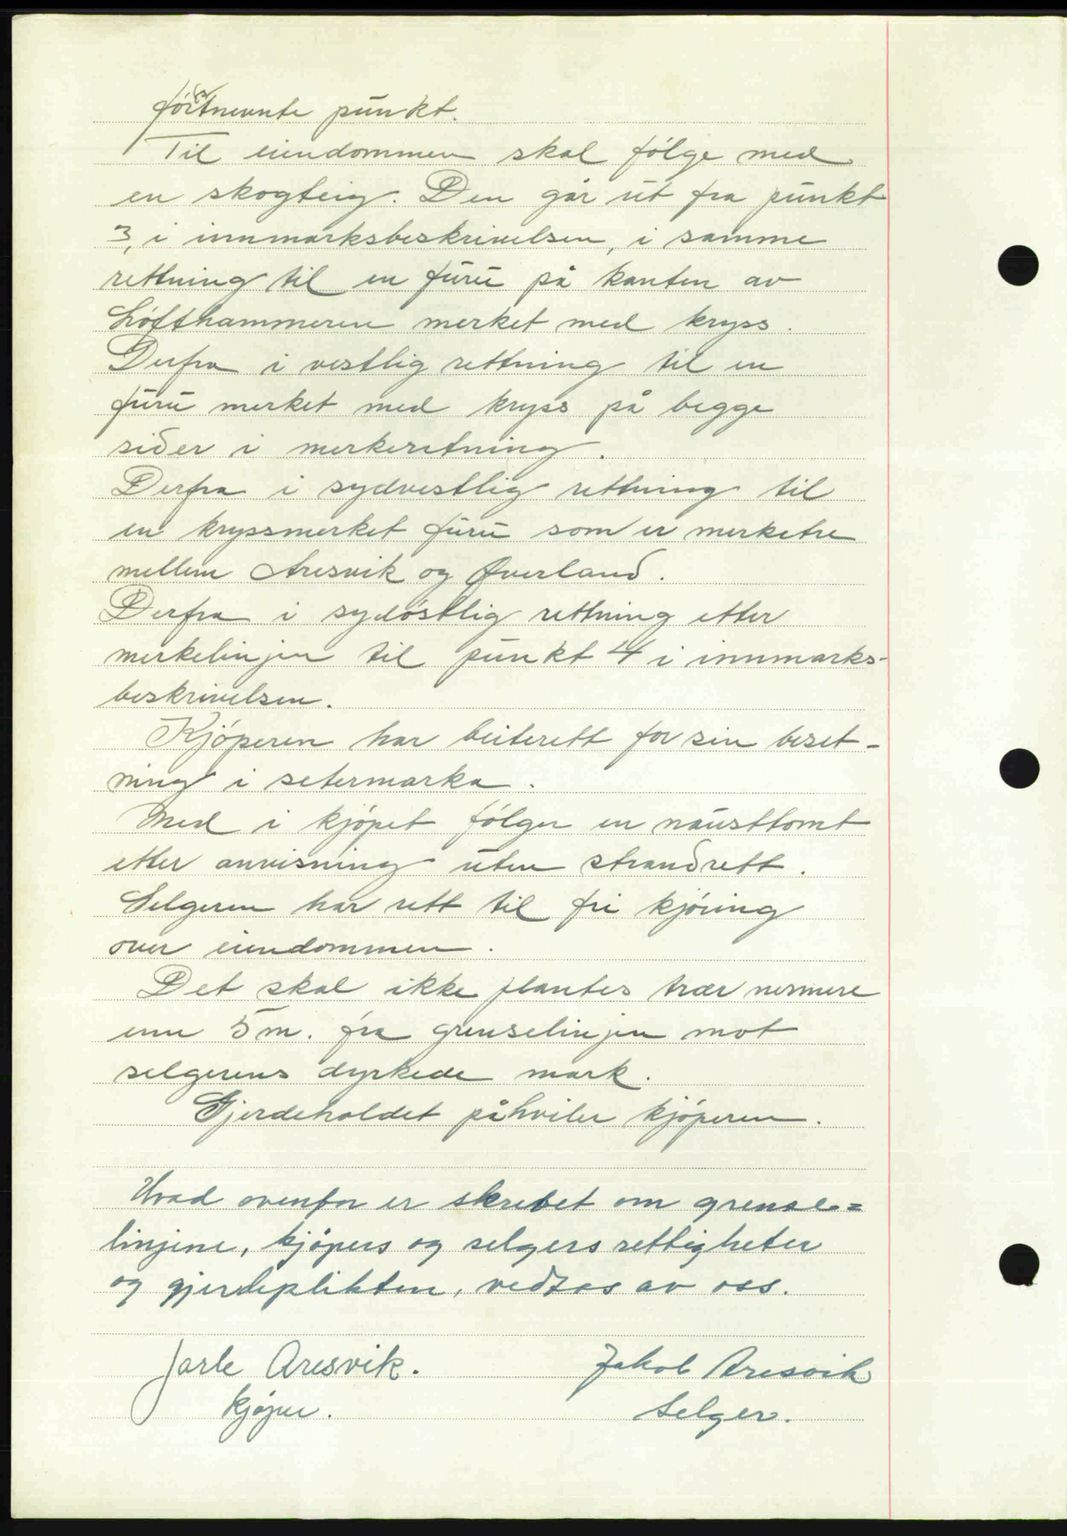 førstnevnte punkt.
Til eiendommen skal følge med
en skogteig. Den går ut fra punkt
3, i innmarksbeskrivelsen, i samme
rettning til en furu på kanten av
Lofthammeren merket med kryss.
Derfra i vestlig rettning til en
furu merket med kryss på begge
sider i merkeretning.
Derfra i sydvestlig rettning til
en kryssmerket furu som er merketre
mellem Aresvik og Øverland.
Derfra i sydøstlig rettning etter
merkelinjen til punkt 4 i innmarks-
beskrivelsen.
Kjøperen har beiterett for sin beset-
ning i setermarka.
Med i kjøpet følger en nausttomt
etter anvisning uten strandrett.
Selgeren har rett til fri kjøring
over eiendommen.
Det skal ikke plantes trær nermere
enn 5 m. fra grenselinjen mot
selgerens dyrkede mark.
Gjerdeholdet påhviler kjøperen.
Hvad ovenfor er skrevet om grense=
linjene, kjøpers og selgers rettigheter
og gjerdeplikten, vedtas av oss.
Jarle Aresvik. Jakob Aresvik
kjøper. Selger.